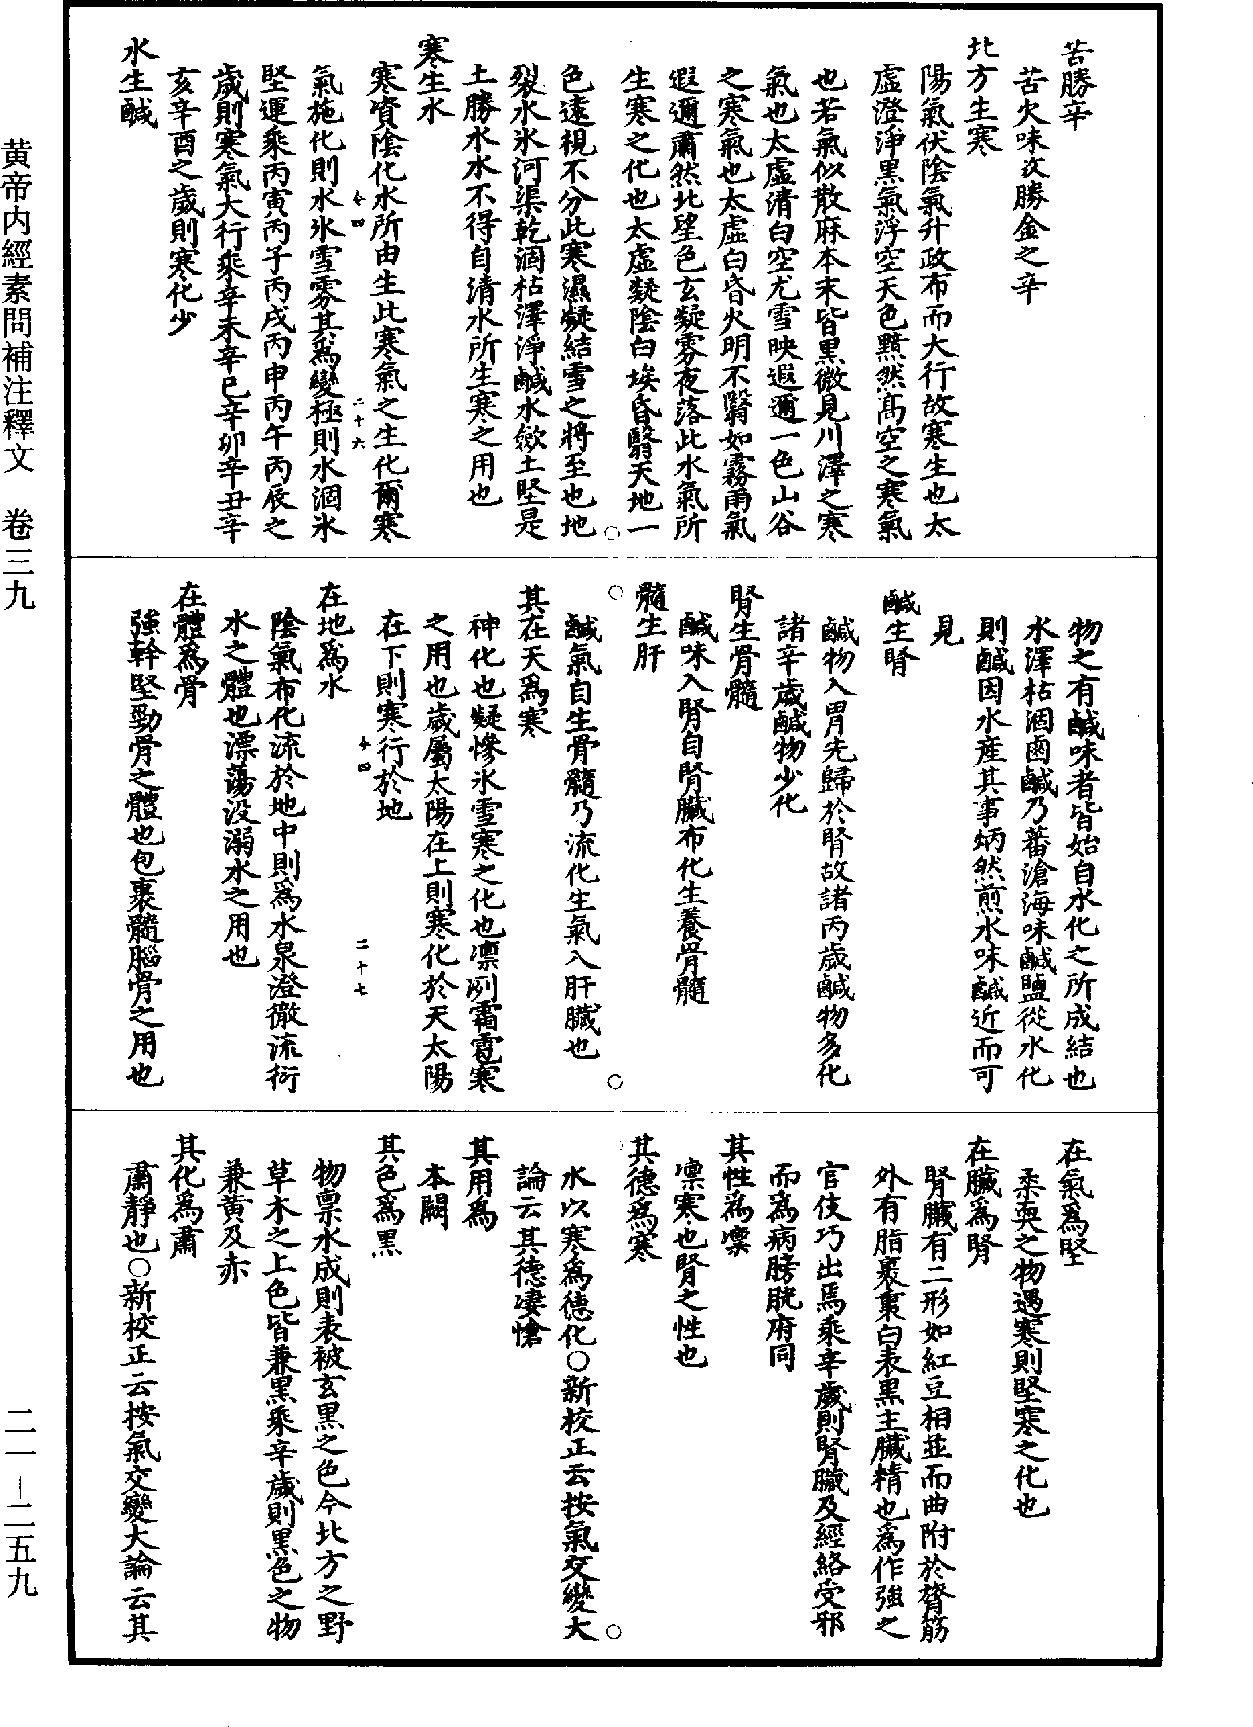 苦勝辛
苦火味故勝金之辛
北方生寒
陽氣伏陰氣升政布而大行故寒生也太
虛澄淨黑氣浮空天色黯然高空之寒氣
也若氣似散麻本末皆黑微見川澤之寒
氣也太虛清白空尤雪映遐邇一色山谷
之寒氣也太虛白昏火明不翳如霧雨氣
遐邇肅然北望色玄凝霧夜落此水氣所
生寒之化也太虛凝陰白埃昏翳天地一
色遠視不分此寒濕凝結雪之將至也地
裂水冰河渠乾涸枯澤淨鹹水斂土堅是
土勝水水不得自清水所生寒之用也
寒生水
寒資陰化水所由生此寒氣之生化爾寒
氣施化則水冰雪雰其爲變極則水涸氷
堅運乘丙寅丙子丙戌丙申丙午丙辰之
歲則寒氣大行乘辛未辛巳辛卯辛丑辛
亥辛酉之歲則寒化少
水生鹹
物之有鹹味者皆始自水化之所成結也
水澤枯涸鹵鹹乃蕃滄海味鹹鹽從水化
則鹹因水産其事炳然煎水味鹹近而可
見
鹹生腎
鹹物入胃先歸於腎故諸丙歲鹹物多化
諸辛歲鹹物少化
腎生骨髓
鹹味入腎自腎臟布化生養骨髓
髓生肝
鹹氣自生骨髓乃流化生氣入肝臟也
其在天爲寒
神化也凝慘氷雪寒之化也凛冽霜雹寒
之用也歲屬太陽在上則寒化於天太陽
在下則寒行於地
在地爲水
陰氣布化流於地中則爲水泉澄徹流衍
水之體也漂蕩没溺水之用也
在體爲骨
強幹堅勁骨之體也包裹髓腦骨之用也
在氣爲堅
柔耎之物遇寒則堅寒之化也
在臟爲腎
腎臟有二形如紅豆相並而曲附於膂筋
外有脂裹裏白表黑主臟精也爲作強之
官伎巧出焉乘辛歲則腎臟及經絡受邪
而爲病膀胱府同
其性爲凛
凛寒也腎之性也
其德爲寒
水以寒爲德化○新校正云按氣交變大
論云其德淒愴
其用爲
本闕
其色爲黑
物禀水成則表被玄黑之色今北方之野
草木之上色皆兼黑乘辛歲則黑色之物
兼黃及赤
其化爲肅
肅靜也○新校正云按氣交變大論云其
黃帝内經素問補注釋文 卷三九
二一－二五九